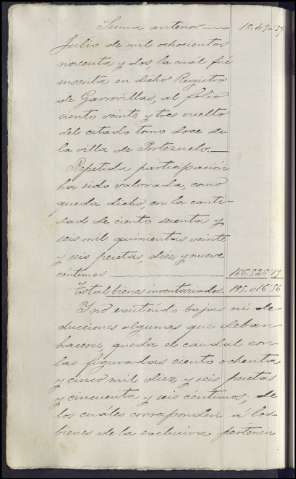 Suma anterior 18.490,37
Julio de mil ochocientos
noventa y dos la cual fue
inscrita en dicho Registro
de Garrovillas, al folio
ciento veinte y tres vuelto
del citado tomo doce de
la villa de Portezuelo.
Repetida participación
ha sido valorada, como
queda dicho en la canti-
dad de ciento sesenta y
seis mil quinientas veinte
y seis pesetas, diez y nueve
céntimos 166.526,19
Total bienes inventariados 185.016,56
Y no existiendo bajas ni de-
ducciones algunas que deban
hacerse, queda el caudal con
las figuradas ciento ochenta
y cinco mil diez y seis pesetas
y cincuenta y seis céntimos, de
los cuales corresponden a los
bienes de la exclusiva pertenen